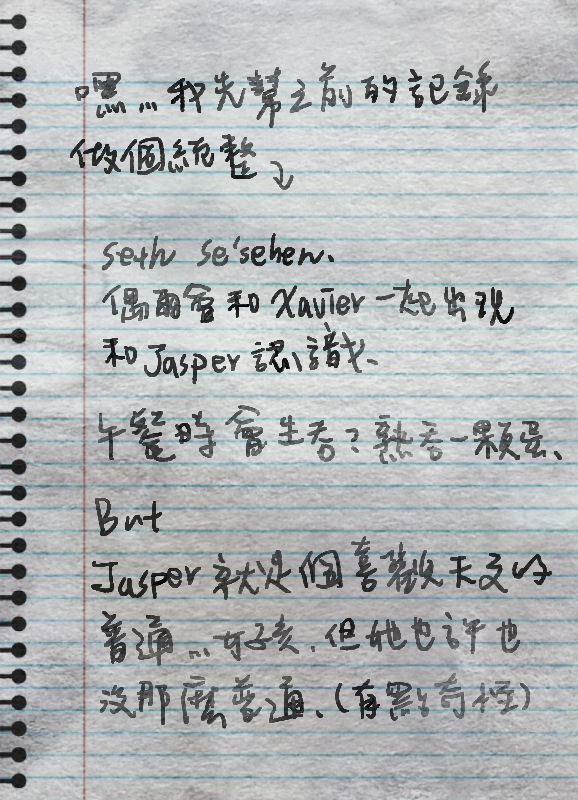 嘿...我先幫之前的記錄
做個統整↓
seth se'sehen.
偶爾會和Xavier一起出現
和Jasper認識、
午餐時會生吞?熟吞一顆蛋、
But
Jasper就是個喜歡天文的
普通...女孩.但她也許也
沒那麼普通、(有點奇怪)